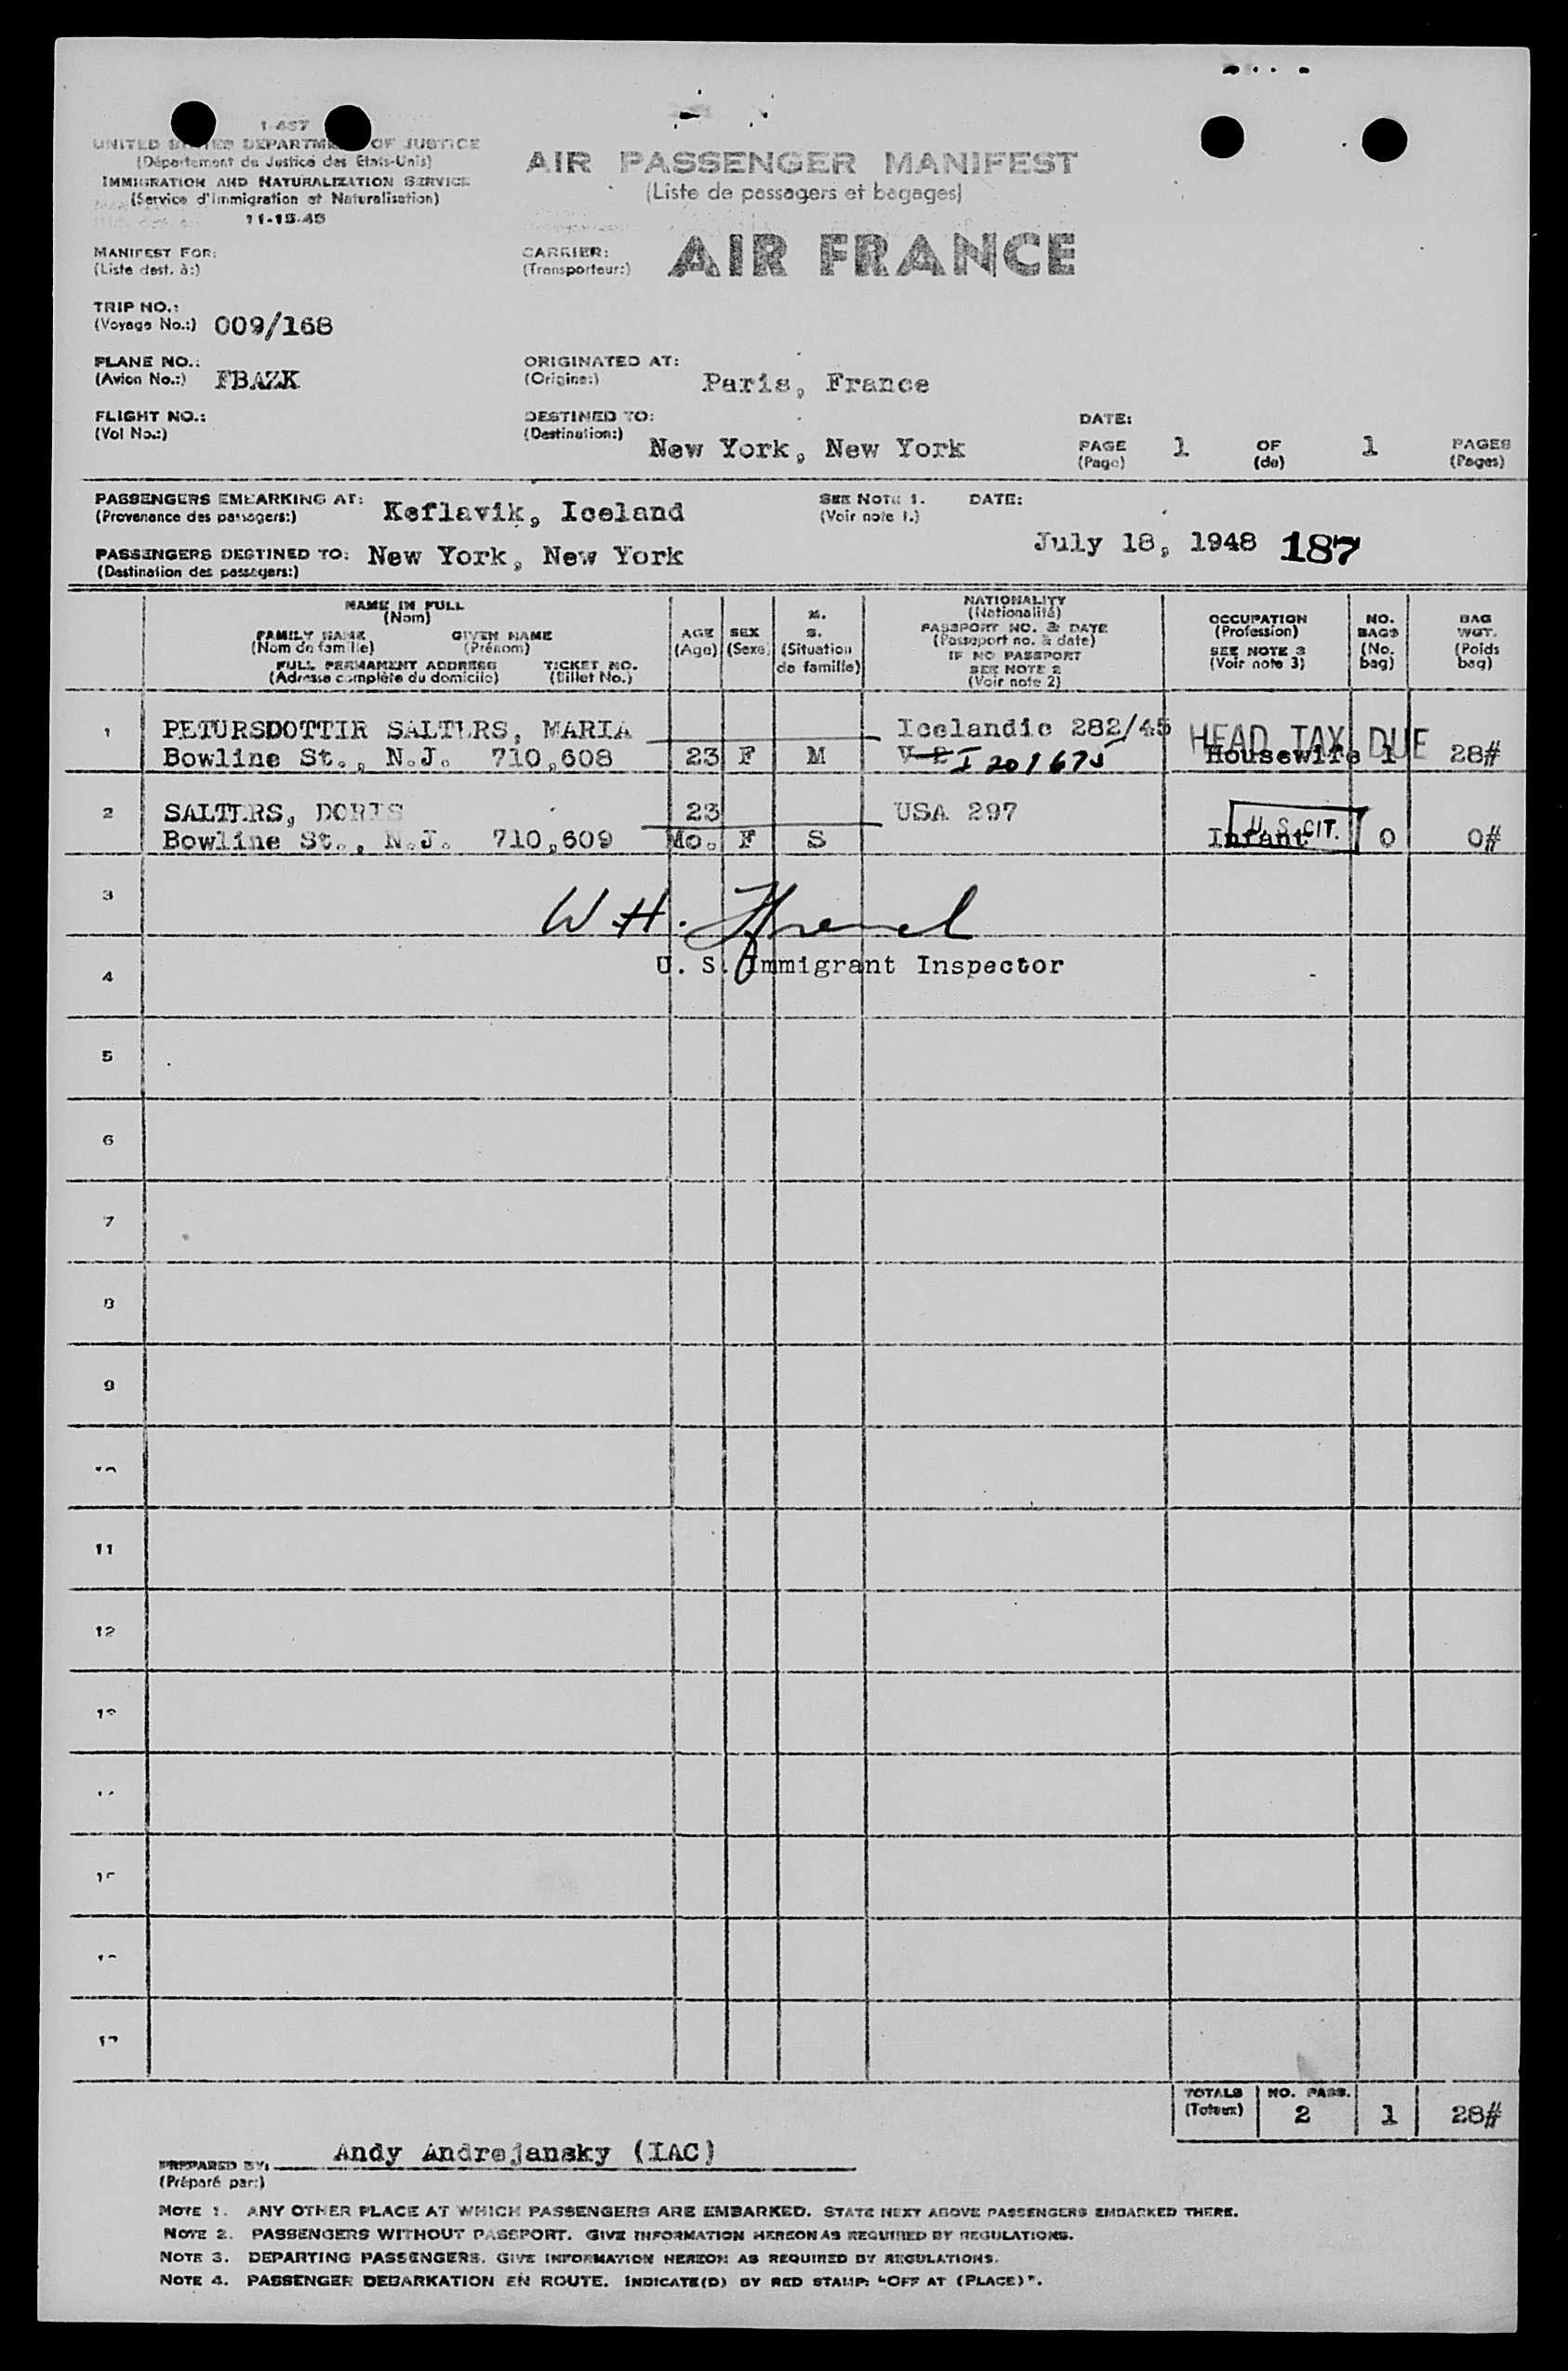 I-467
UNITED STATES DEPARTMENT OF JUSTICE
(Département de Justice des Etats-Unis)
IMMIGRATION AND NATURALIZATION SERVICE
(Service d'Immigration et Naturalisation)
11-15-45
AIR PASSENGER MANIFEST
(Liste de passagers et bagages)
MANIFEST FOR:
(Liste dest. à:)
CARRIER:
(Transporteur:)
AIR FRANCE
TRIP NO.:
(Voyage No.:) 009/168
PLANE NO.:
(Avion No.:) FBAZK
ORIGINATED AT:
(Origine:) Paris, France
FLIGHT NO.:
(Vol No.:)
DESTINED TO:
(Destination:) New York, New York
DATE:
PAGE 1 OF 1 PAGES
(Page) (de) (Pages)
PASSENGERS EMBARKING AT: Keflavik, Iceland
(Provenance des passagers:)
SEE NOTE 1. DATE:
(Voir note 1.)
July 18, 1948 187
PASSENGERS DESTINED TO: New York, New York
(Destination des passagers:)
NAME IN FULL
(Nom)
FAMILY NAME GIVEN NAME
(Nom de famille) (Prénom)
FULL PERMANENT ADDRESS TICKET NO.
(Adresse complète du domicile) (Billet No.)
AGE
(Age)
SEX
(Sexe)
M.
S.
(Situation
de famille)
NATIONALITY
(Nationalité)
PASSPORT NO. & DATE
(Passeport no. & date)
IF NO PASSPORT
SEE NOTE 2
(Voir note 2)
OCCUPATION
(Profession)
SEE NOTE 3
(Voir note 3)
NO.
BAGS
(No.
bag)
BAG
WGT.
(Poids
bag)
1 PETURSDOTTIR SALTERS, MARIA Icelandic 282/45 HEAD TAX DUE
Bowline St., N.J. 710,608 23 F M I 201675 Housewife 1 28#
2 SALTERS, DORIS 23 USA 297 U. S. CIT.
Bowline St., N.J. 710,609 Mo. F S Infant 0 0#
3 W. H.
4 U. S. Immigrant Inspector
5
6
7
8
9
11
12
TOTALS NO. PASS.
(Totaux) 2 1 28#
PREPARED BY: Andy Andrejansky (IAC)
(Préparé par:)
NOTE 1. ANY OTHER PLACE AT WHICH PASSENGERS ARE EMBARKED. STATE NEXT ABOVE PASSENGERS EMBARKED THERE.
NOTE 2. PASSENGERS WITHOUT PASSPORT. GIVE INFORMATION HEREON AS REQUIRED BY REGULATIONS.
NOTE 3. DEPARTING PASSENGERS. GIVE INFORMATION HEREON AS REQUIRED BY REGULATIONS.
NOTE 4. PASSENGER DEBARKATION EN ROUTE. INDICATE(D) BY RED STAMP: "OFF AT (PLACE)".